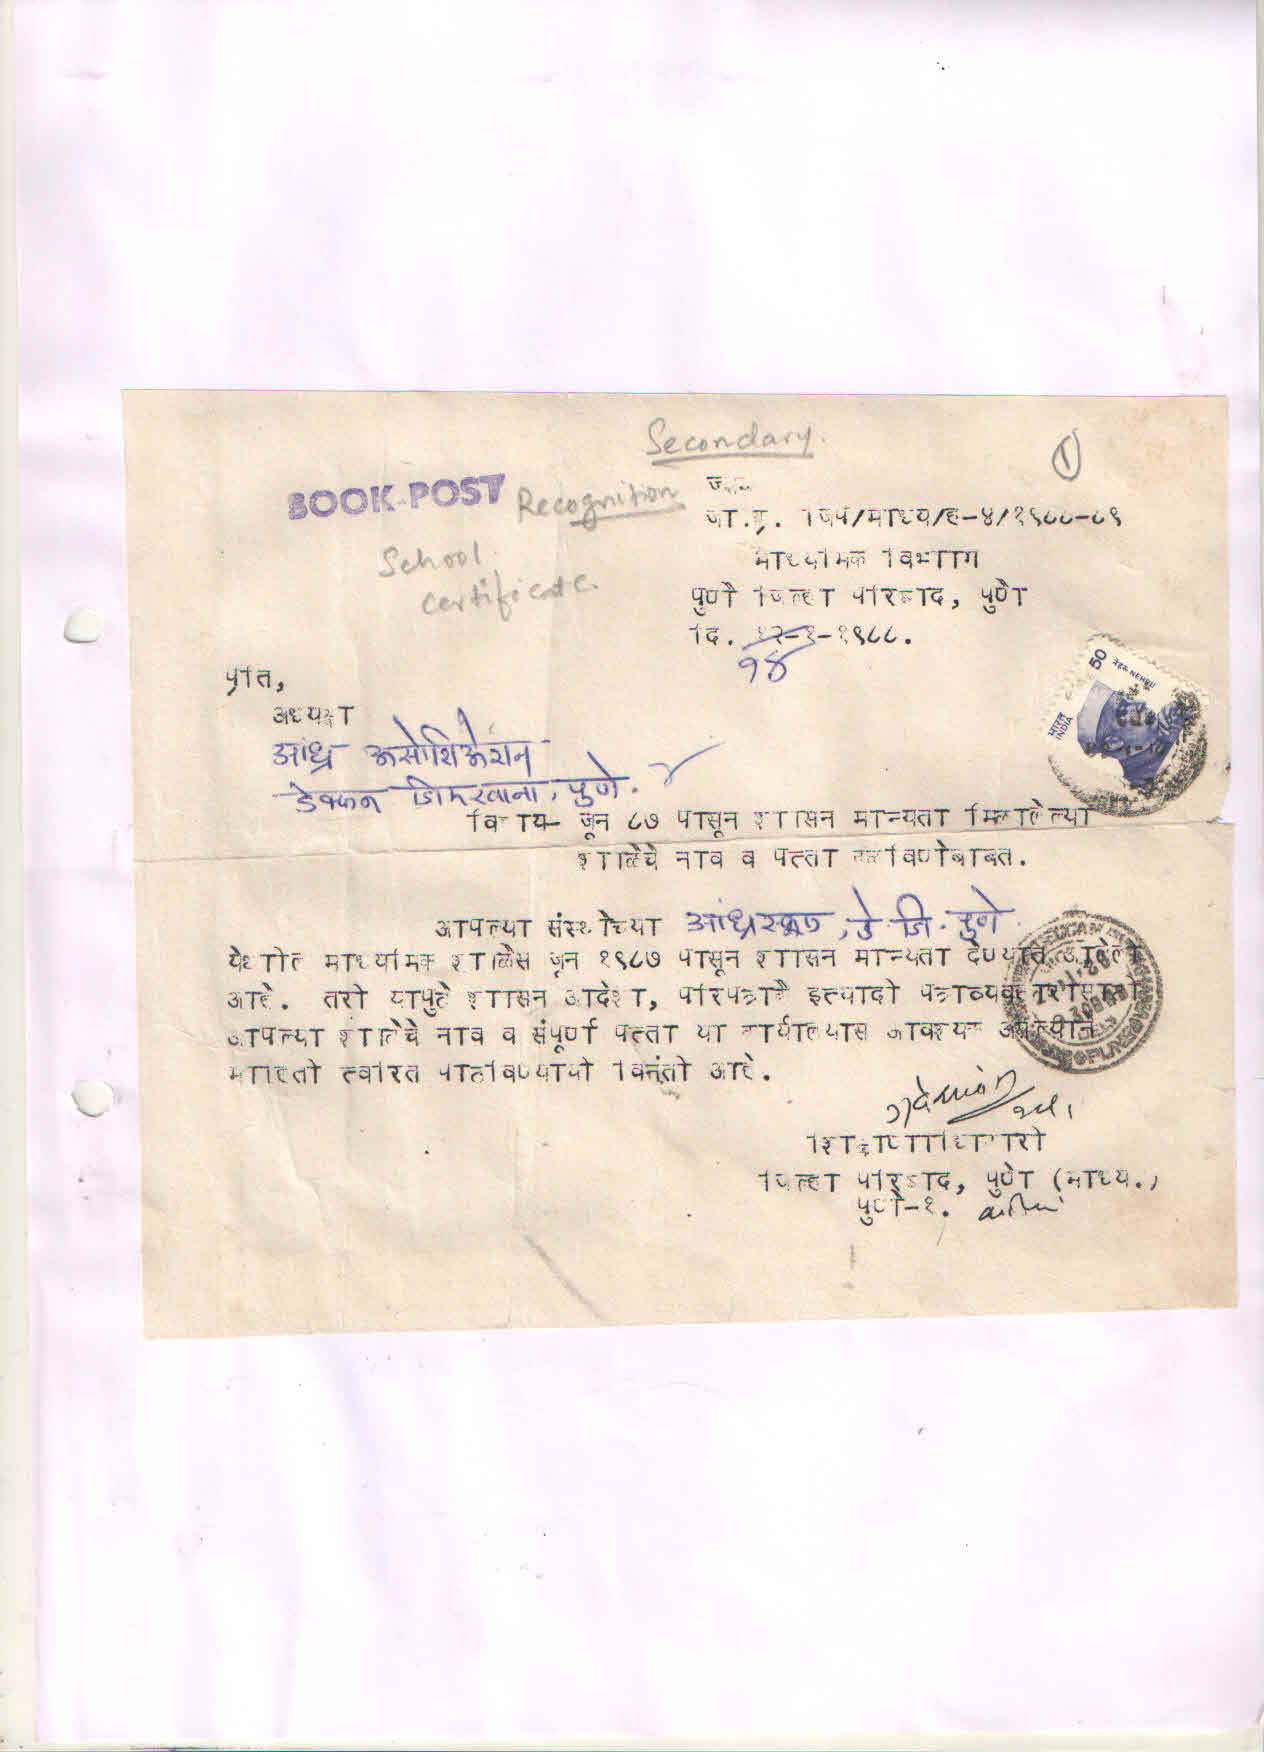 Secondary.
1
BOOK-POST
Recognition
School
certificate.
जा.क्र. जिपप/माध्य/ह-४/१९८८-८९
माध्यमिक विभाग
पुणे जिल्हा परिषद, पुणे
दि. १२-१-१९८८.
१४
50
नेहरू NEHRU
भारत
INDIA
प्रति,
अध्यक्ष
आंध्र असोशिकेशन
डेक्कन जिमखाना, पुणे.
विषय- जून ८७ पासून शासन मान्यता मिळालेल्या
शाळेचे नाव व पत्ता कळविणेबाबत.
आपल्या संस्थेच्या आंध्र स्कूल, डे. जि. पुणे
येथील माध्यमिक शाळेस जून १९८७ पासून शासन मान्यता देण्यात आलेली
आहे. तरी यापुढे शासन आदेश, परिपत्रके इत्यादी पत्रव्यवहारासाठी
आपल्या शाळेचे नाव व संपूर्ण पत्ता या कार्यालयास आवश्यक असल्याने
माहिती त्वरित पाठविण्याची विनंती आहे.
शिक्षणाधिकारी
जिल्हा परिषद, पुणे (माध्य.)
पुणे-१.